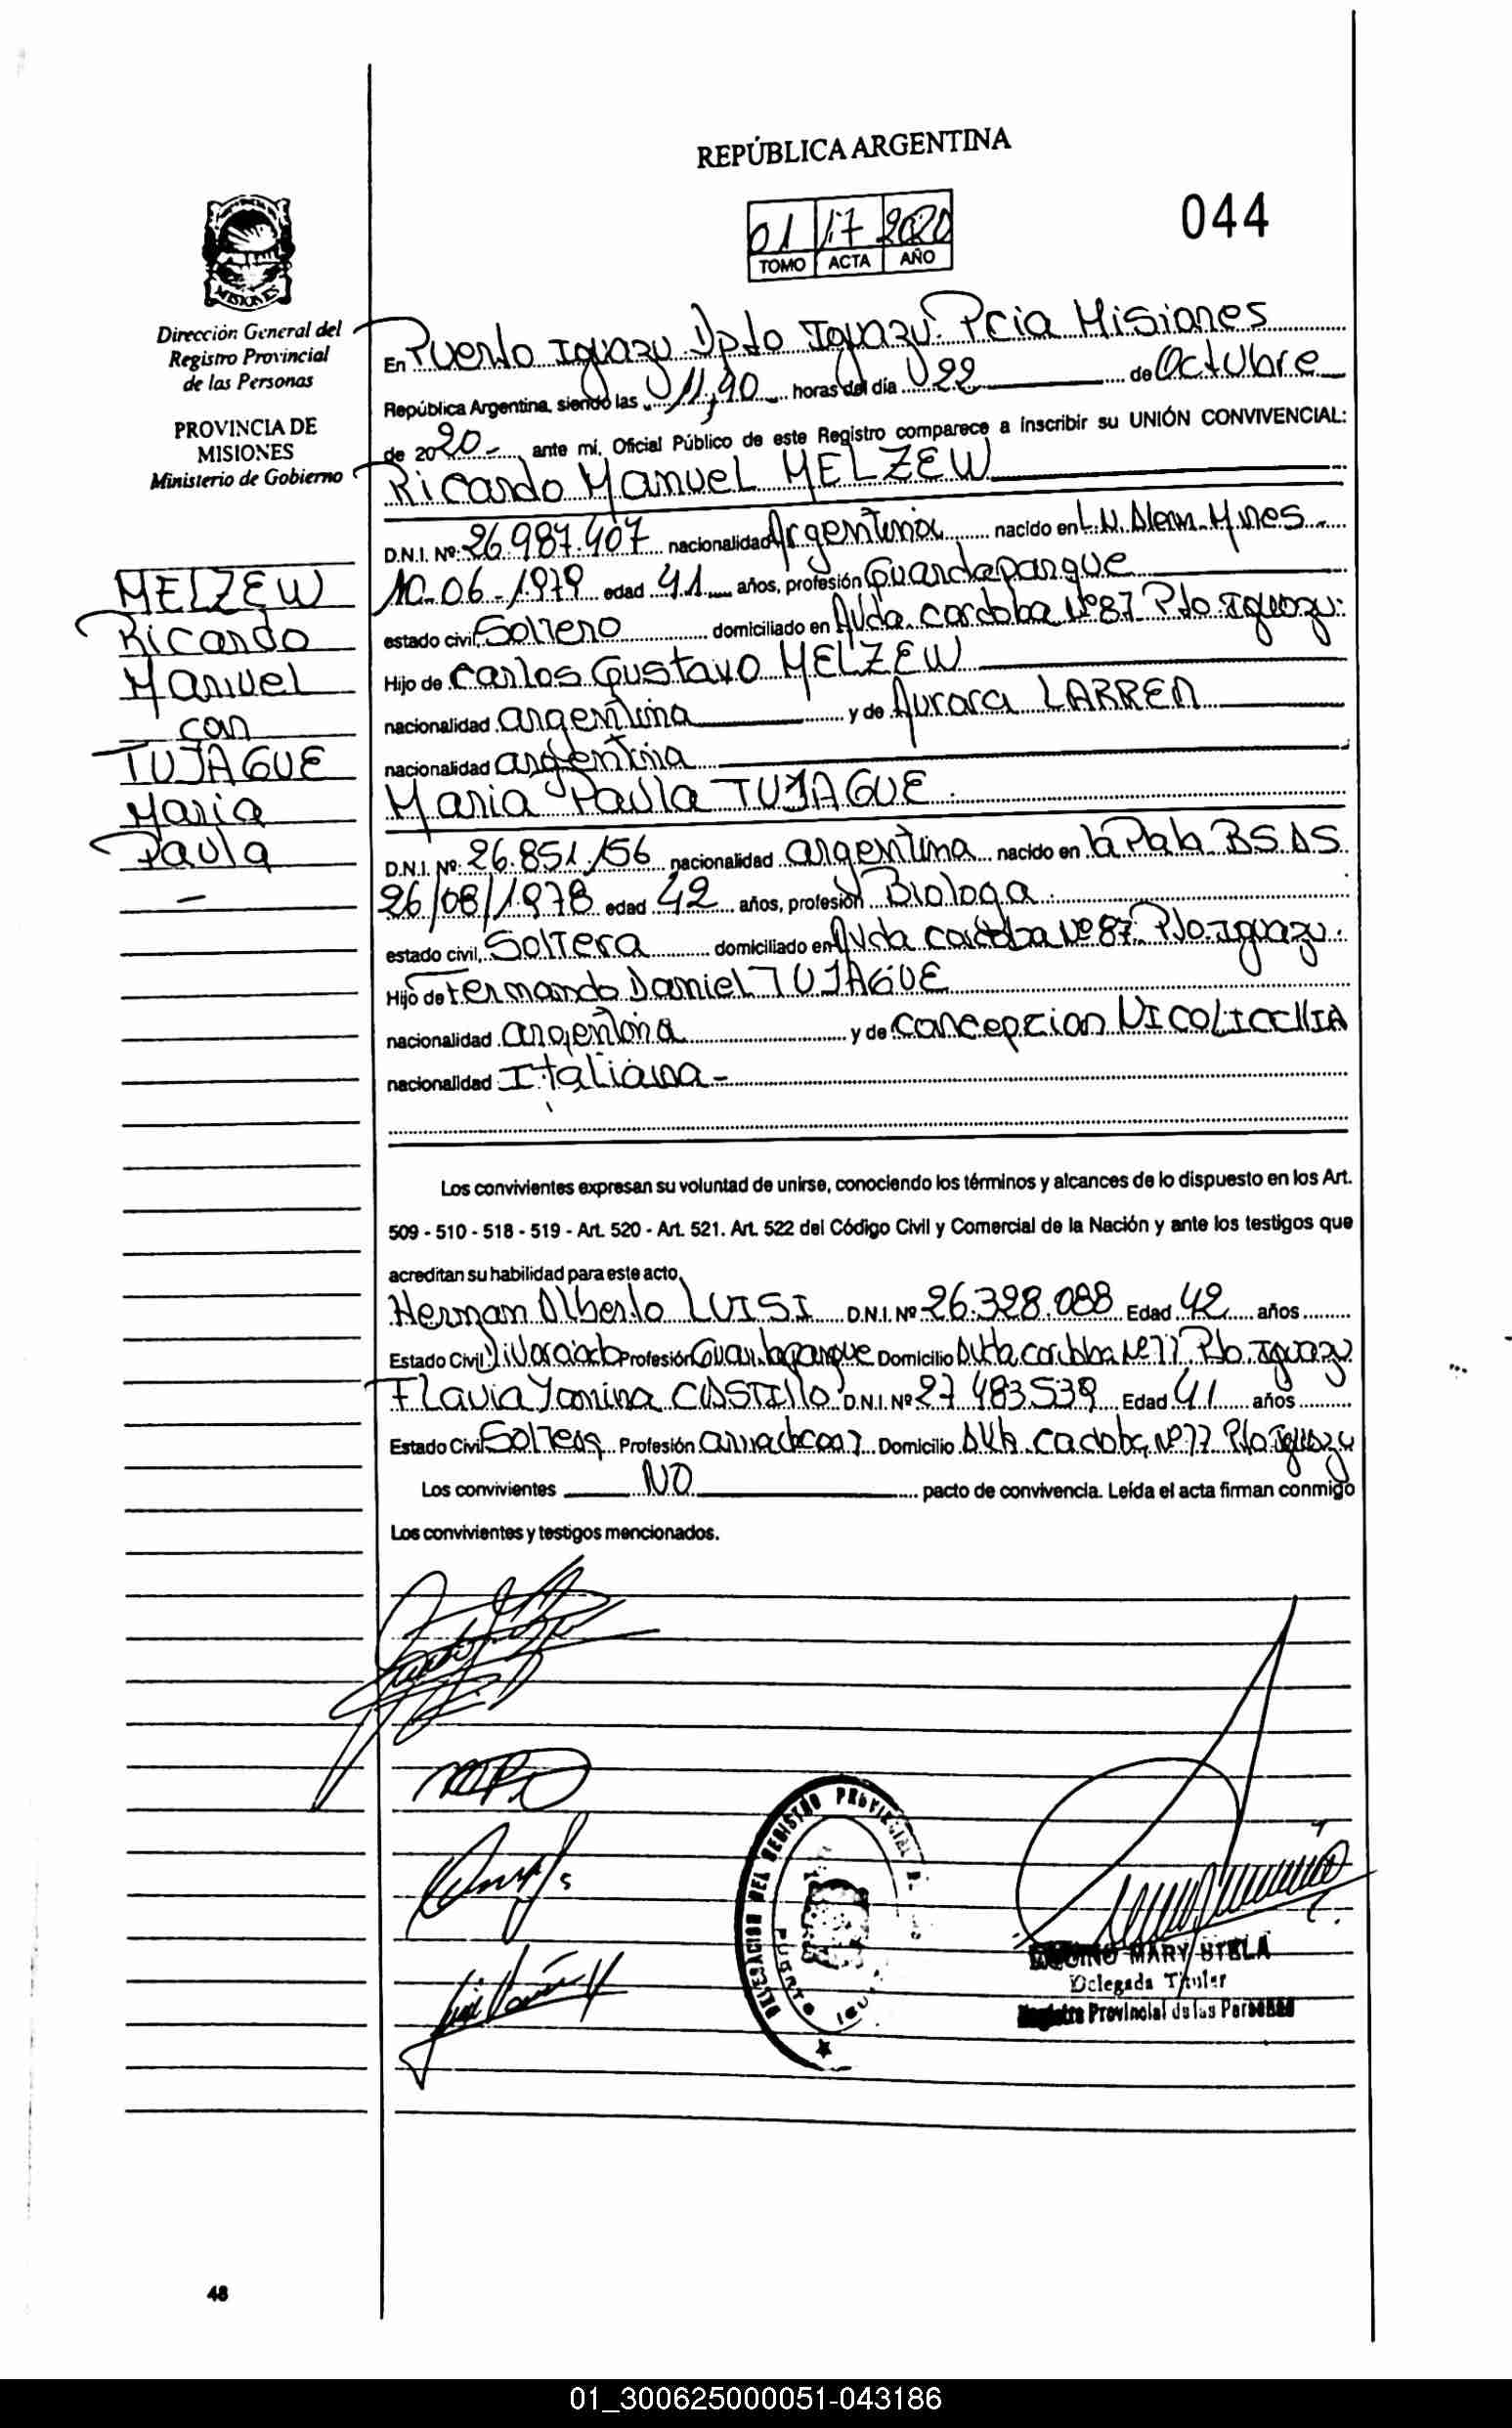 REPÚBLICA ARGENTINA
044
01 17 2020
TOMO ACTA AÑO
MISIONES
Dirección General del
Registro Provincial
de las Personas
PROVINCIA DE
MISIONES
Ministerio de Gobierno
MELZEW
Ricardo
Manuel
con
TUJAGUE
Maria
Paula
-
En Puerto Iguazu Dpto Iguazu. Pcia Misiones
República Argentina, siendo las 11,40 horas del día 22 de Octubre
de 2020- ante mí, Oficial Público de este Registro comparece a inscribir su UNIÓN CONVIVENCIAL:
Ricardo Manuel MELZEW
D.N.I. Nº: 26.987.407 nacionalidad Argentina nacido en L.N. Alem. Mnes
10-06-1979 edad 41 años, profesión Guardaparque
estado civil Soltero domiciliado en Avda. cordoba Nº 87 Pto Iguazu.
Hijo de Carlos Gustavo MELZEW
nacionalidad argentina y de Aurora LARREA
nacionalidad argentina
Maria Paula TUJAGUE
D.N.I. Nº: 26.851.156 nacionalidad argentina nacido en la Plata BSAS.
26/08/1978 edad 42 años, profesión Biologa
estado civil, Soltera domiciliado en Avda cordoba Nº 87 Pto. Iguazu.
Hijo de Fernando Daniel TUJAGUE
nacionalidad argentina y de Concepcion
nacionalidad Italiana-
Los convivientes expresan su voluntad de unirse, conociendo los términos y alcances de lo dispuesto en los Art.
509 - 510 - 518 - 519 - Art. 520 - Art. 521. Art. 522 del Código Civil y Comercial de la Nación y ante los testigos que
acreditan su habilidad para este acto,
Hernan Alberto LUISI D.N.I. Nº 26.328.088 Edad 42 años
Estado Civil Divorciado Profesión Guardaparque Domicilio Avda cordoba Nº 77 Pto. Iguazu
Flavia Yamina CASTILLO D.N.I. Nº 27 483539 Edad 41 años
Estado Civil Soltera Profesión Domicilio Avda. cordoba Nº 77 Pto Iguazu
Los convivientes NO pacto de convivencia. Leída el acta firman conmigo
Los convivientes y testigos mencionados.
DELEGACION DEL REGISTRO PROVINCIAL
PUERTO
MARY STELA
Delegada Titular
Registro Provincial de las Personas
48
01_300625000051-043186